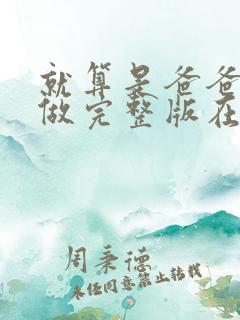 就算是爸爸
做完整版在
周秉德
未经同意禁止转载